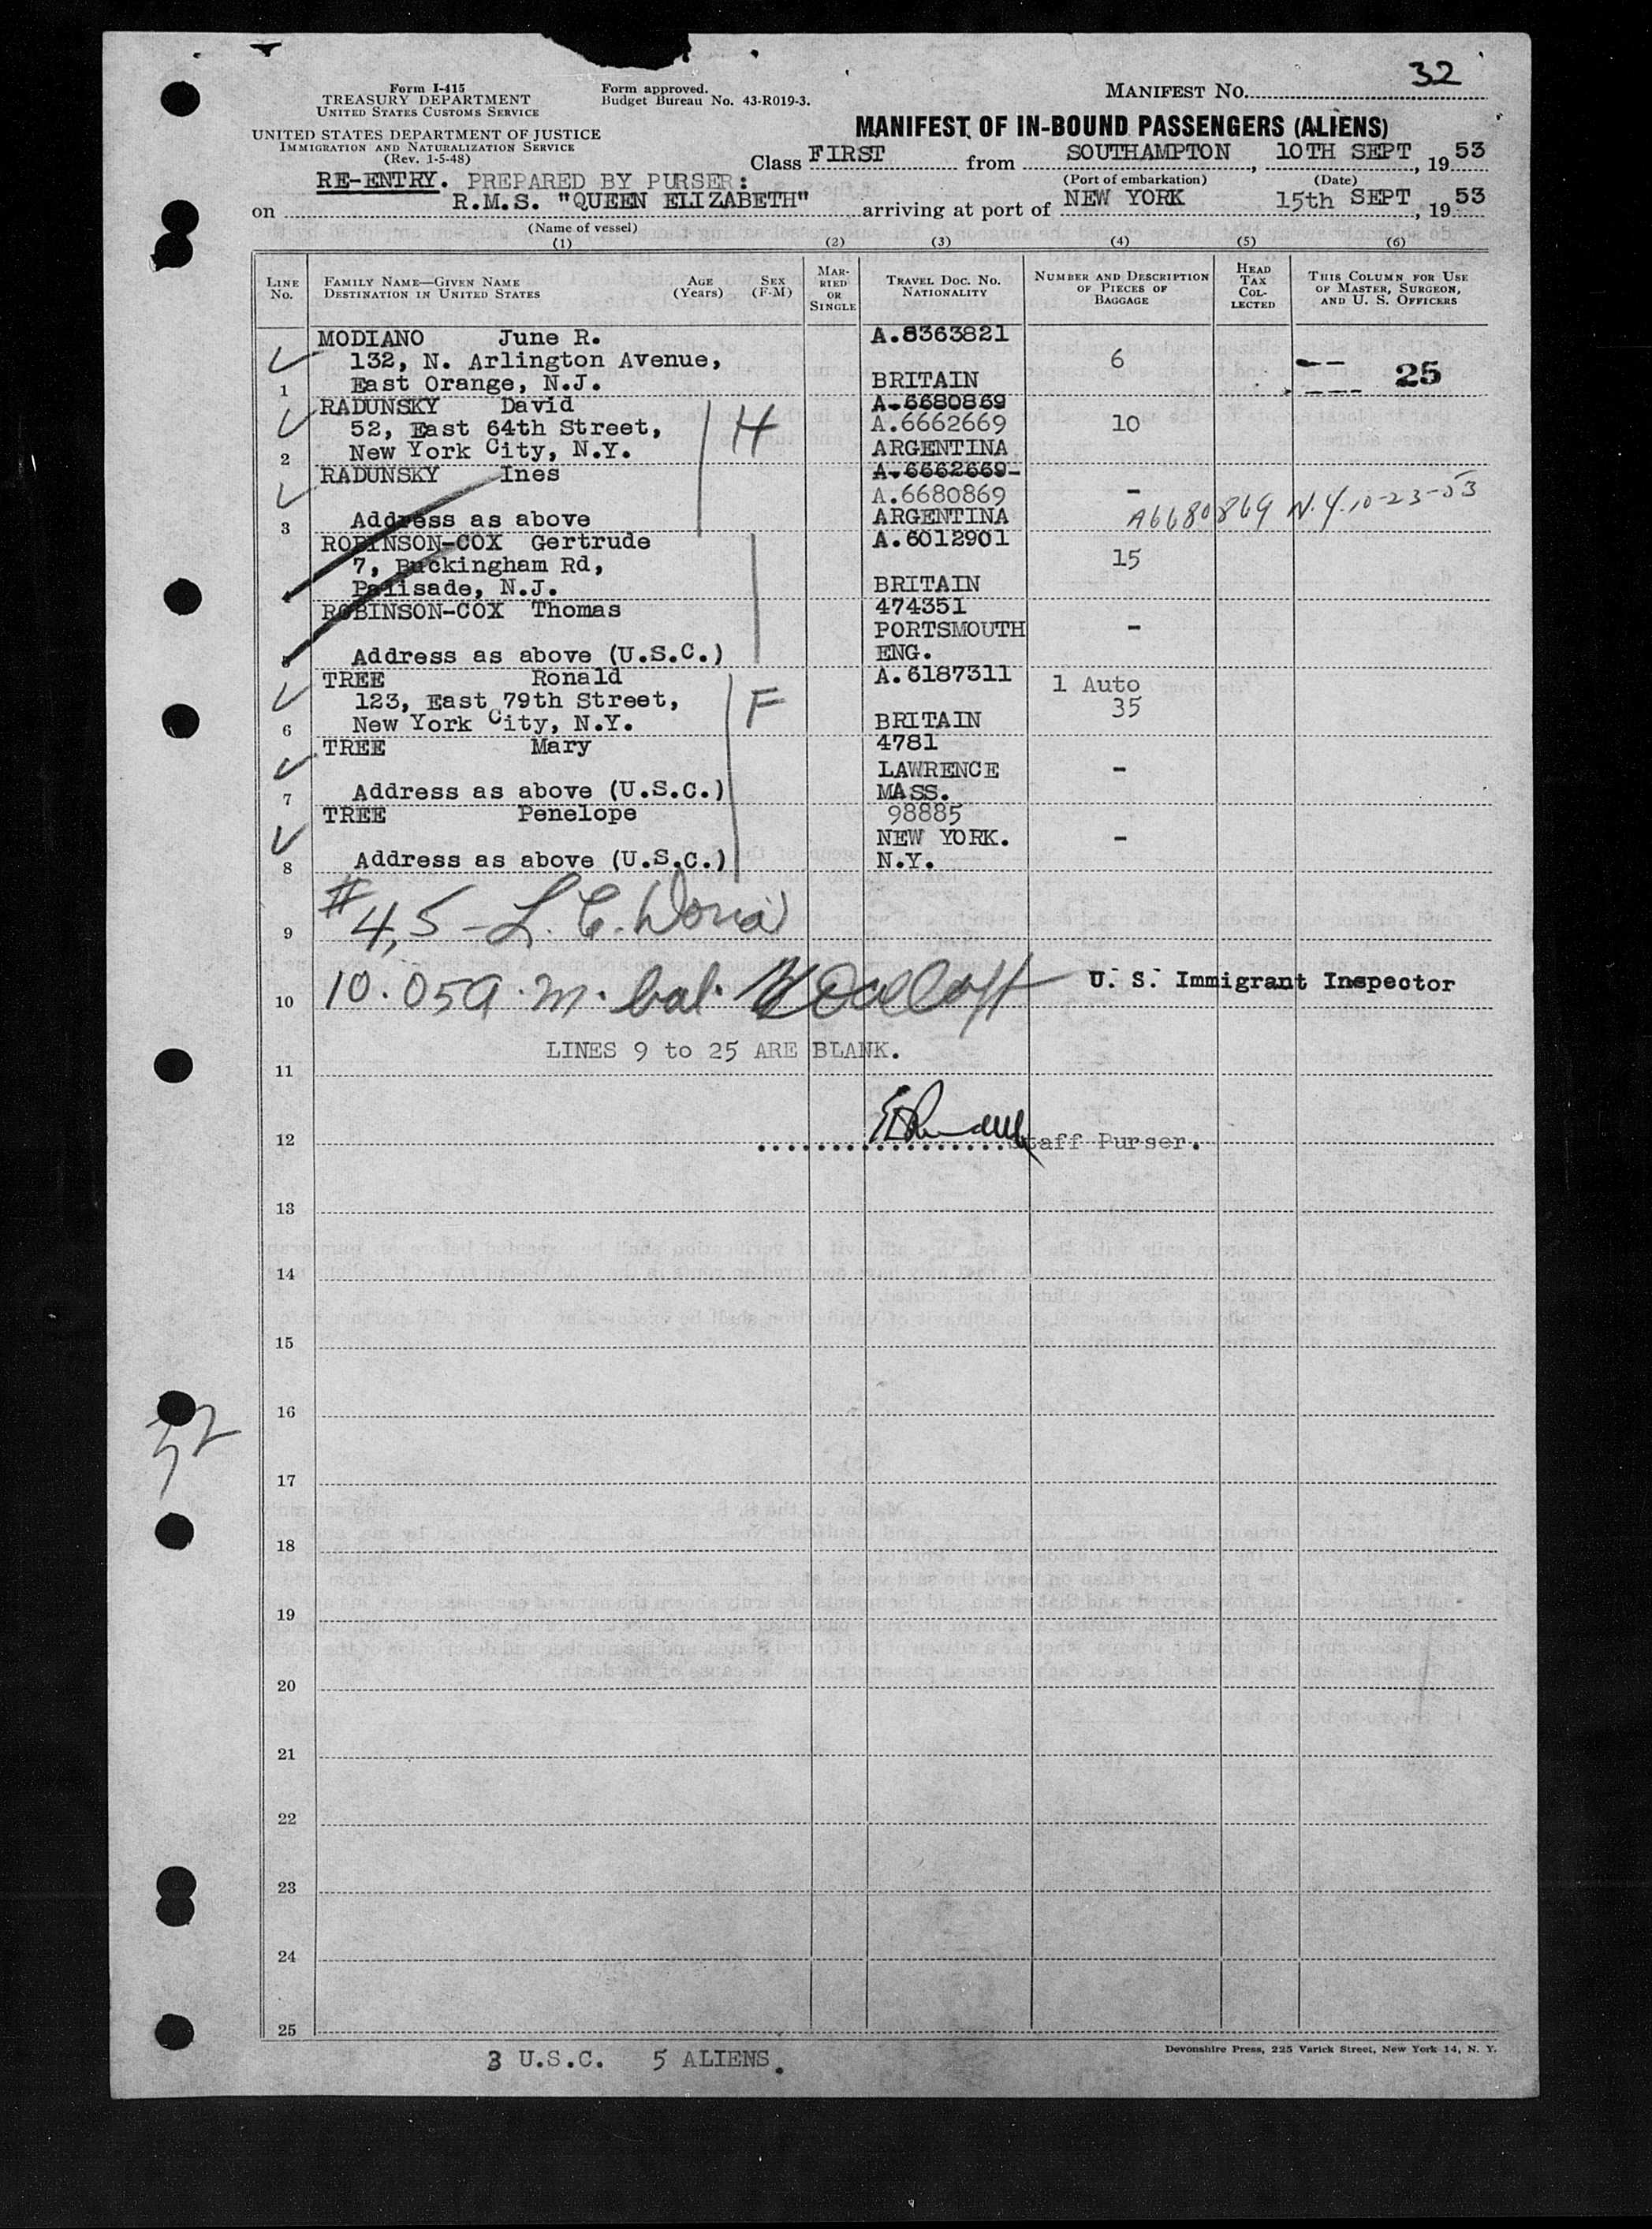 32
Form I-415
TREASURY DEPARTMENT
UNITED STATES CUSTOMS SERVICE
Form approved.
Budget Bureau No. 43-R019-3.
MANIFEST NO.
UNITED STATES DEPARTMENT OF JUSTICE
IMMIGRATION AND NATURALIZATION SERVICE
(Rev. 1-5-48)
MANIFEST OF IN-BOUND PASSENGERS (ALIENS)
Class FIRST from SOUTHAMPTON, 10TH SEPT, 1953
(Port of embarkation) (Date)
RE-ENTRY. PREPARED BY PURSER:
on R.M.S. "QUEEN ELIZABETH" arriving at port of NEW YORK 15th SEPT, 1953
(Name of vessel)
(1) (2) (3) (4) (5) (6)
LINE NO.
FAMILY NAME—GIVEN NAME
DESTINATION IN UNITED STATES
AGE (Years)
SEX (F-M)
MARRIED OR SINGLE
TRAVEL DOC. NO.
NATIONALITY
NUMBER AND DESCRIPTION OF PIECES OF BAGGAGE
HEAD TAX COLLECTED
THIS COLUMN FOR USE OF MASTER, SURGEON, AND U. S. OFFICERS
MODIANO June R. A.8363821
132, N. Arlington Avenue, 6
1 East Orange, N.J. BRITAIN 25
RADUNSKY David A.6680869
52, East 64th Street, H A.6662669 10
2 New York City, N.Y. ARGENTINA
RADUNSKY Ines A.6662669-
A.6680869 -
3 Address as above ARGENTINA A6680869 N.Y. 10-23-53
ROBINSON-COX Gertrude A.6012901
7, Buckingham Rd, 15
4 Palisade, N.J. BRITAIN
ROBINSON-COX Thomas 474351
PORTSMOUTH -
5 Address as above (U.S.C.) ENG.
TREE Ronald A.6187311
123, East 79th Street, F 1 Auto
6 New York City, N.Y. BRITAIN 35
TREE Mary 4781
LAWRENCE -
7 Address as above (U.S.C.) MASS.
TREE Penelope 98885
NEW YORK. -
8 Address as above (U.S.C.) N.Y.
9 # 4,5 - L. C.
10 10.05 a.m. bal. U. S. Immigrant Inspector
LINES 9 to 25 ARE BLANK.
11
12 Staff Purser.
13
14
15
16
17
18
19
20
21
22
23
24
25
3 U.S.C. 5 ALIENS.
Devonshire Press, 225 Varick Street, New York 14, N. Y.